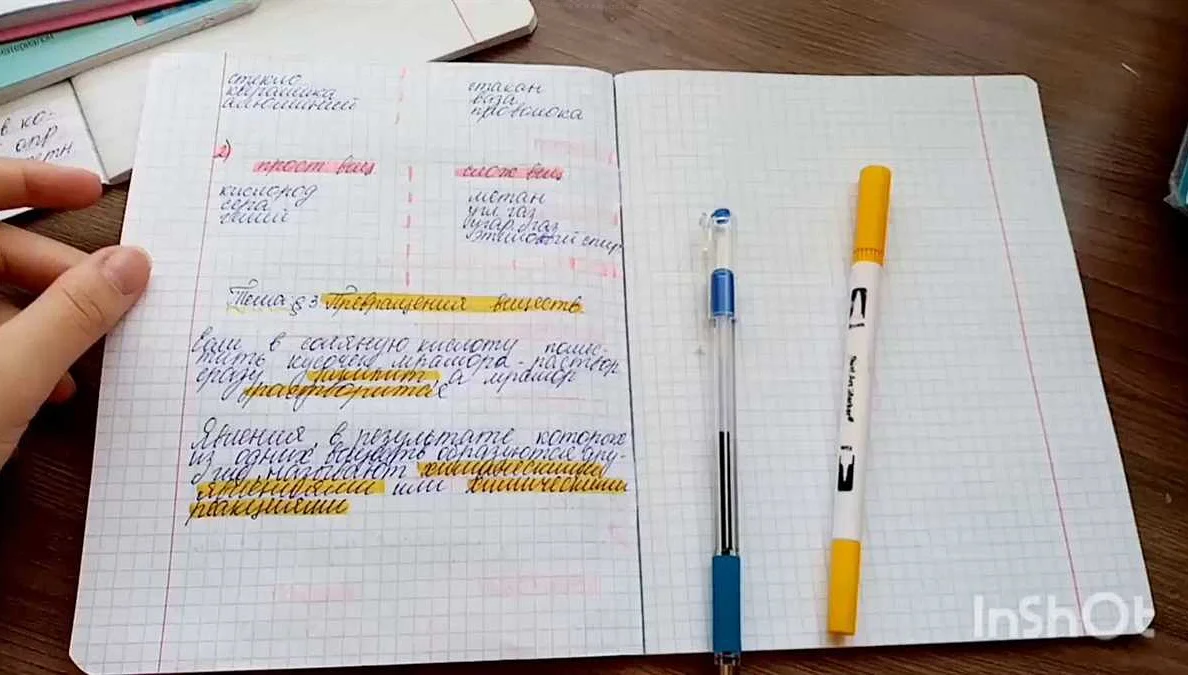 материалы
в ко-
опр
стекло
карандашика
алюминий
стакан
ваза
проволока
2)
прост вещ
слож вещ
кислород
сера
гелий
метан
угл. газ
угар. газ
этиловый спирт
Тема §3 Превращения веществ
Если в соляную кислоту помес-
тить кусочки мрамора - раствор
сразу закипит а мрамор
растворится
Явления, в результате которых
из одних веществ образуются дру-
гие называют химическими
явлениями или химическими
реакциями
InShOt